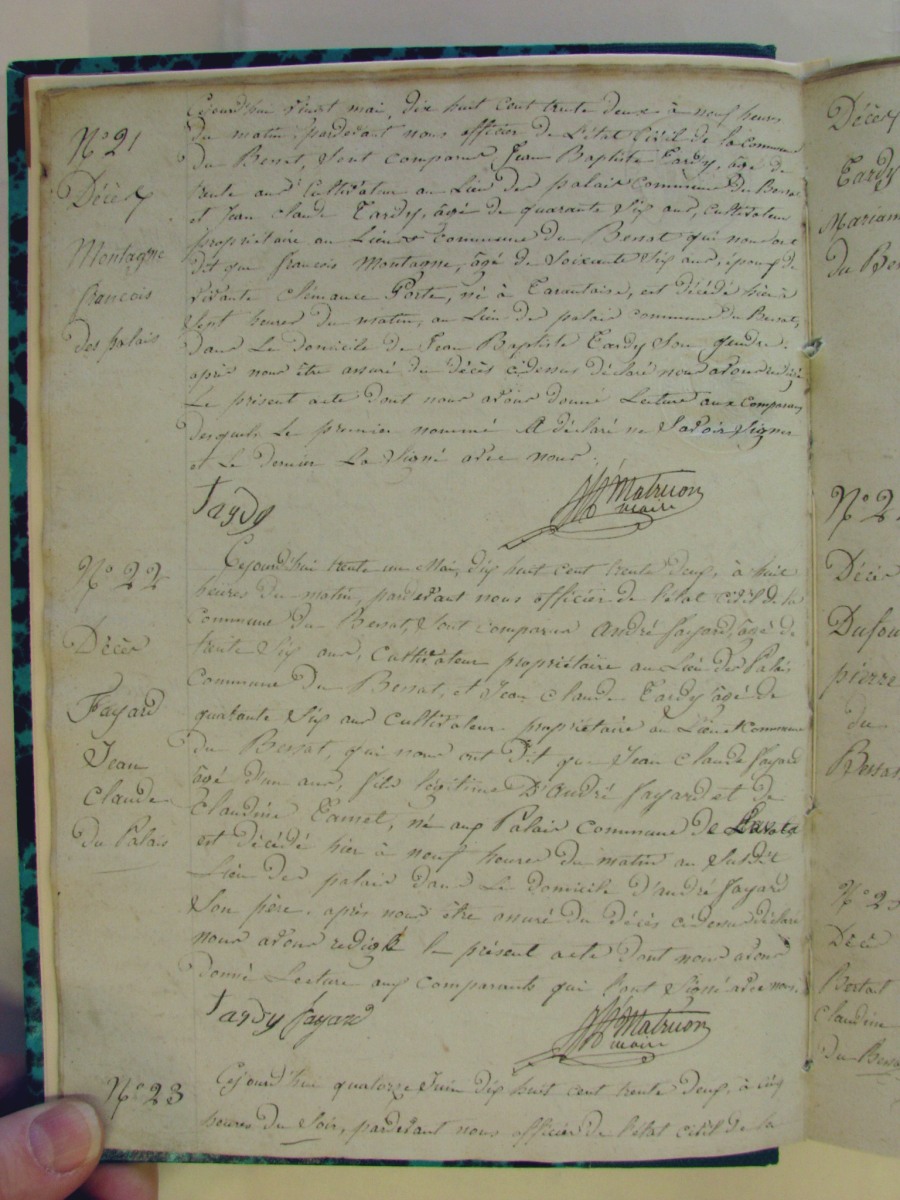 N° 21
Décès
Montagne
françois
des palais
Cejourd'hui vingt mai, dix huit cent trente deux à neuf heures
du matin, pardevant nous officier de l'état Civil de la commune
du Bessat, Sont comparus Jean Baptiste Tardy, âgé de
trente ans Cultivateur au Lieu des palais Commune du Bessat
et Jean claude Tardy, âgé de quarante Six ans, cultivateur
propriétaire au Lieu & commune du Bessat qui nous ont
dit que françois Montagne, âgé de Soixante Six ans, époux de
vivante Clémance Porte, né à Tarantaise, est décédé hier à
Sept heures du matin, au Lieu de palais commune du Bessat,
dans Le domicile de Jean Baptiste Tardy Son gendre.
après nous être assuré du décès cidessus déclaré nous avons rédigé
Le présent acte dont nous avons donné Lecture aux comparans
desquels Le premier nommé A déclaré ne Savoir Signer
et Le dernier La Signé avec nous.
Tardy
Matricon
maire
N° 22
Décès
Fayard
Jean
Claude
du Palais
Cejourd'hui trente un Mai, dix huit cent trente deux, à huit
heures du matin, pardevant nous officier de l'état civil de la
Commune du Bessat, Sont comparus André fayard, âgé de
trente Six ans, Cultivateur propriétaire au Lieu des Palais
Commune du Bessat, et Jean claude Tardy âgé de
quarante Six ans cultivateur propriétaire au Lieu et Commune
du Bessat, qui nous ont dit que Jean claude fayard
âgé d'un ans, fils légitime D'André fayard et de
Claudine Tamet, né aux Palais commune de
est décédé hier à neuf heures du matin au Susdit
Lieu des palais dans Le domicile d'andré fayard
Son père. après nous être assuré du décès cidessus déclaré
nous avons redigé le présent acte dont nous avons
donné Lecture aux comparants qui l'ont Signé avec nous.
Tardy fayard
Matricon
maire
N° 23
Cejourd'hui quatorze Juin dix huit cent trente deux, à cinq
heures du Soir, pardevant nous officier de l'état civil de la
Décès
Tardy
du
N° 2
Décès
pierre
du
Bessat
N° 2
Décès
Claudine
du Bessat